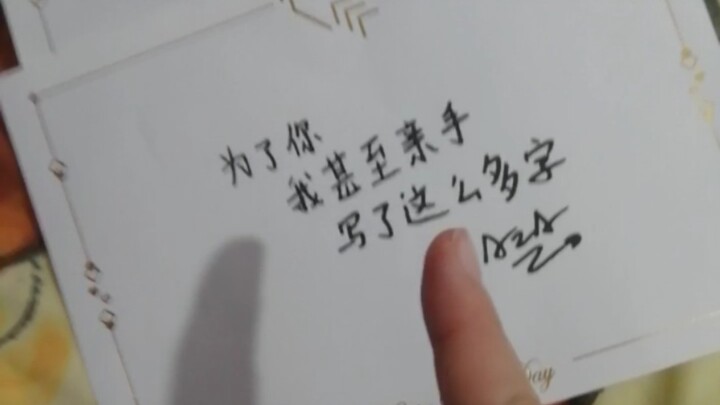 为了你
我甚至亲手
写了这么多字